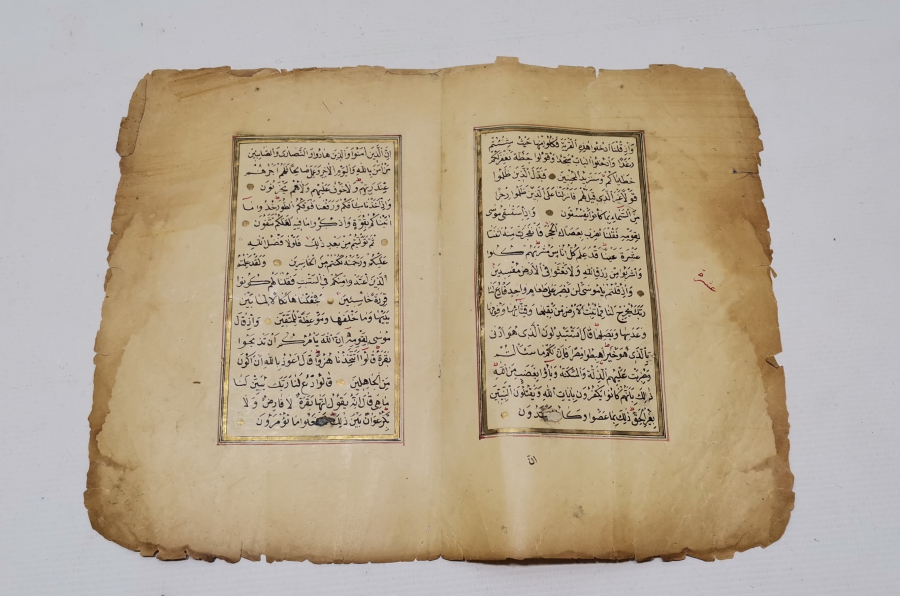 وَاِذْ قُلْنَا ادْخُلُوا هٰذِهِ الْقَرْيَةَ فَكُلُوا مِنْهَا حَيْثُ شِئْتُمْ
رَغَدًا وَادْخُلُوا الْبَابَ سُجَّدًا وَقُولُوا حِطَّةٌ نَغْفِرْ لَكُمْ
خَطَايَاكُمْ وَسَنَزِيدُ الْمُحْسِنِينَ فَبَدَّلَ الَّذِينَ ظَلَمُوا
قَوْلًا غَيْرَ الَّذِي قِيلَ لَهُمْ فَاَنْزَلْنَا عَلَى الَّذِينَ ظَلَمُوا رِجْزًا
مِنَ السَّمَاءِ بِمَا كَانُوا يَفْسُقُونَ وَاِذِ اسْتَسْقٰى مُوسٰى
لِقَوْمِهِ فَقُلْنَا اضْرِبْ بِعَصَاكَ الْحَجَرَ فَانْفَجَرَتْ مِنْهُ اثْنَتَا
عَشْرَةَ عَيْنًا قَدْ عَلِمَ كُلُّ اُنَاسٍ مَشْرَبَهُمْ كُلُوا
وَاشْرَبُوا مِنْ رِزْقِ اللّٰهِ وَلَا تَعْثَوْا فِي الْاَرْضِ مُفْسِدِينَ
وَاِذْ قُلْتُمْ يَا مُوسٰى لَنْ نَصْبِرَ عَلٰى طَعَامٍ وَاحِدٍ فَادْعُ لَنَا
رَبَّكَ يُخْرِجْ لَنَا مِمَّا تُنْبِتُ الْاَرْضُ مِنْ بَقْلِهَا وَقِثَّائِهَا وَفُومِهَا
وَعَدَسِهَا وَبَصَلِهَا قَالَ اَتَسْتَبْدِلُونَ الَّذِي هُوَ اَدْنٰى
بِالَّذِي هُوَ خَيْرٌ اهْبِطُوا مِصْرًا فَاِنَّ لَكُمْ مَا سَاَلْتُمْ
وَضُرِبَتْ عَلَيْهِمُ الذِّلَّةُ وَالْمَسْكَنَةُ وَبَاؤُا بِغَضَبٍ مِنَ اللّٰهِ
ذٰلِكَ بِاَنَّهُمْ كَانُوا يَكْفُرُونَ بِاٰيَاتِ اللّٰهِ وَيَقْتُلُونَ النَّبِيِّينَ
بِغَيْرِ الْحَقِّ ذٰلِكَ بِمَا عَصَوْا
ان
اِنَّ الَّذِينَ اٰمَنُوا وَالَّذِينَ هَادُوا وَالنَّصَارٰى وَالصَّابِئِينَ
مَنْ اٰمَنَ بِاللّٰهِ وَالْيَوْمِ الْاٰخِرِ وَعَمِلَ صَالِحًا فَلَهُمْ اَجْرُهُمْ
عِنْدَ رَبِّهِمْ وَلَا خَوْفٌ عَلَيْهِمْ وَلَا هُمْ يَحْزَنُونَ
وَاِذْ اَخَذْنَا مِيثَاقَكُمْ وَرَفَعْنَا فَوْقَكُمُ الطُّورَ خُذُوا مَا
اٰتَيْنَاكُمْ بِقُوَّةٍ وَاذْكُرُوا مَا فِيهِ لَعَلَّكُمْ تَتَّقُونَ
ثُمَّ تَوَلَّيْتُمْ مِنْ بَعْدِ ذٰلِكَ فَلَوْلَا فَضْلُ اللّٰهِ
عَلَيْكُمْ وَرَحْمَتُهُ لَكُنْتُمْ مِنَ الْخَاسِرِينَ وَلَقَدْ عَلِمْتُمُ
الَّذِينَ اعْتَدَوْا مِنْكُمْ فِي السَّبْتِ فَقُلْنَا لَهُمْ كُونُوا
قِرَدَةً خَاسِئِينَ فَجَعَلْنَاهَا نَكَالًا لِمَا بَيْنَ
يَدَيْهَا وَمَا خَلْفَهَا وَمَوْعِظَةً لِلْمُتَّقِينَ وَاِذْ قَالَ
مُوسٰى لِقَوْمِهِ اِنَّ اللّٰهَ يَأْمُرُكُمْ اَنْ تَذْبَحُوا
بَقَرَةً قَالُوا اَتَتَّخِذُنَا هُزُوًا قَالَ اَعُوذُ بِاللّٰهِ اَنْ اَكُونَ
مِنَ الْجَاهِلِينَ قَالُوا ادْعُ لَنَا رَبَّكَ يُبَيِّنْ لَنَا
مَا هِيَ قَالَ اِنَّهُ يَقُولُ اِنَّهَا بَقَرَةٌ لَا فَارِضٌ وَلَا
بِكْرٌ عَوَانٌ بَيْنَ ذٰلِكَ فَافْعَلُوا مَا تُؤْمَرُونَ